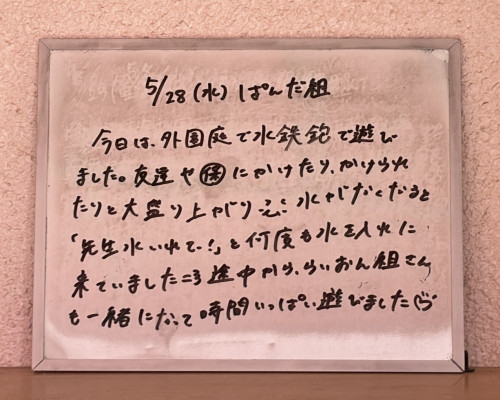 5/28(水) ぱんだ組
今日は、外園庭で水鉄砲で遊び
ました。友達や保にかけたり、かけられ
たりと大盛り上がり 水がなくなると
「先生水いれて〜!」と何度も水を入れに
来ていました 途中から、らいおん組さん
も一緒になって時間いっぱい遊びました